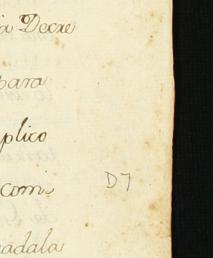 a Decre
para
plico
comi D7
adala